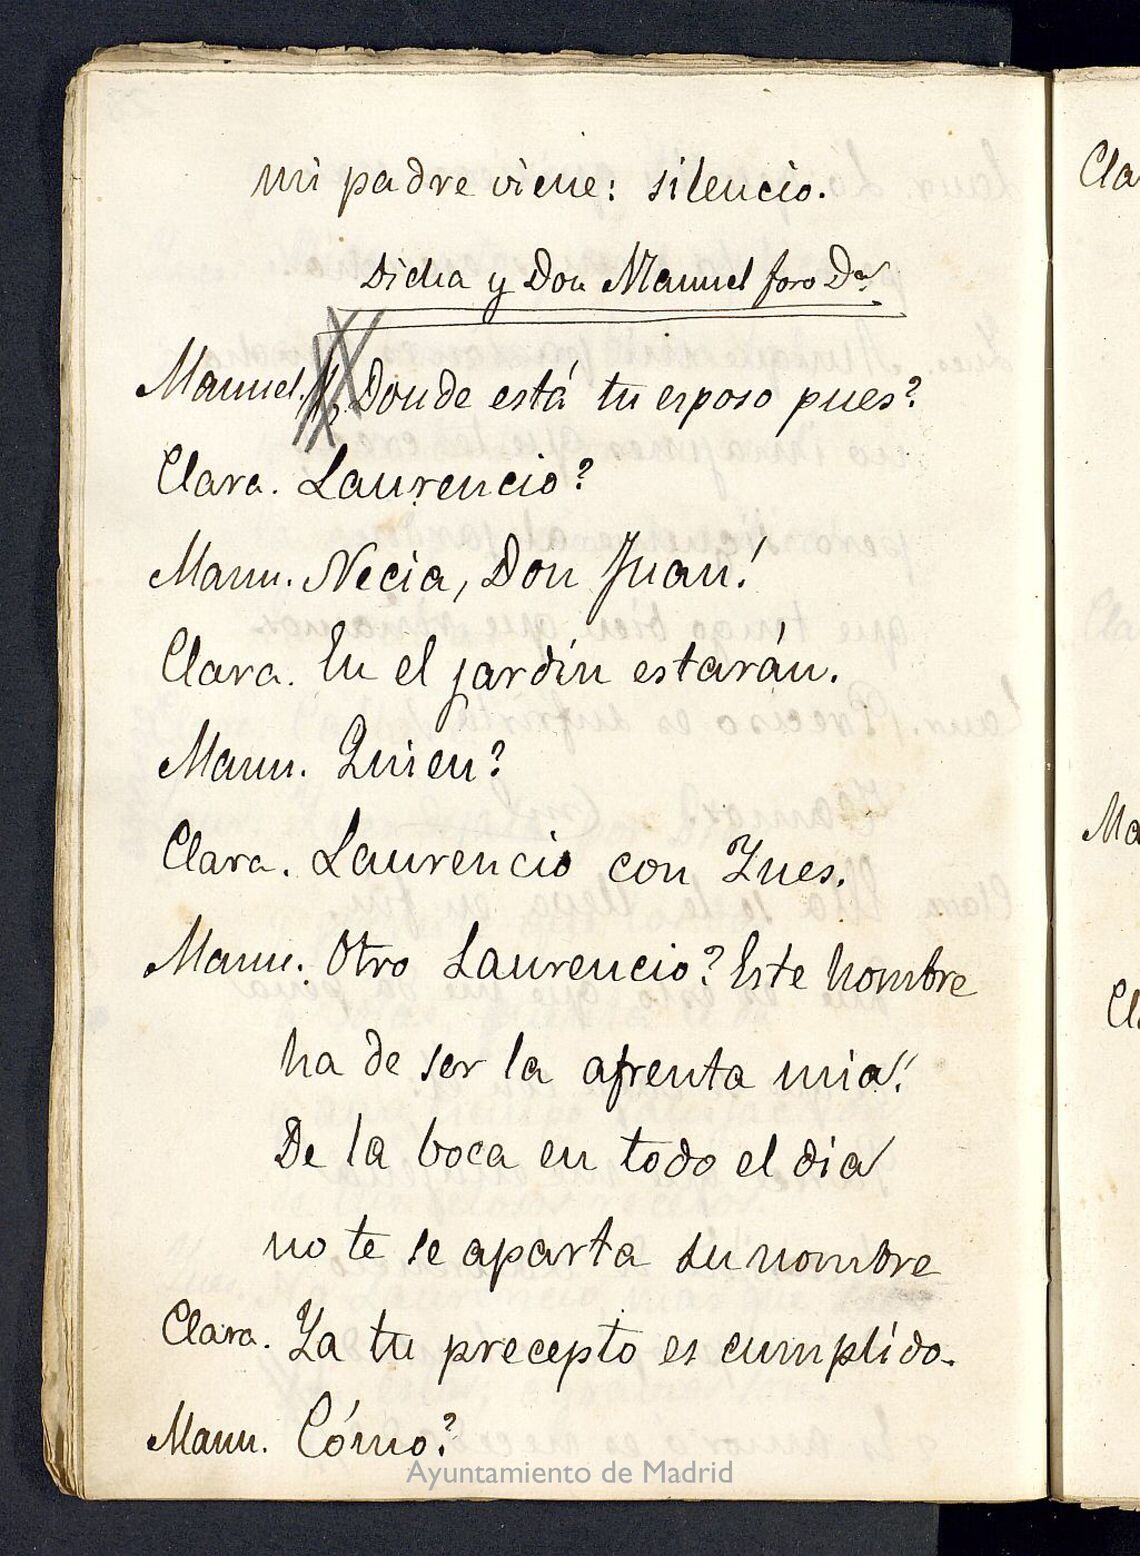 mi padre viene: silencio.
Dicha y Don Manuel foro Da.
Manuel. Donde está tu esposo pues?
Clara. Laurencio?
Manu. Necia, Don Juan!
Clara. En el jardín estarán.
Manu. Quien?
Clara. Laurencio con Ynes.
Manu. Otro Laurencio? Este hombre
ha de ser la afrenta mia!
De la boca en todo el dia
no te se aparta su nombre
Clara. Ya tu precepto es cumplido.
Manu. Cómo?
Ayuntamiento de Madrid
Cla
Ma
Cla